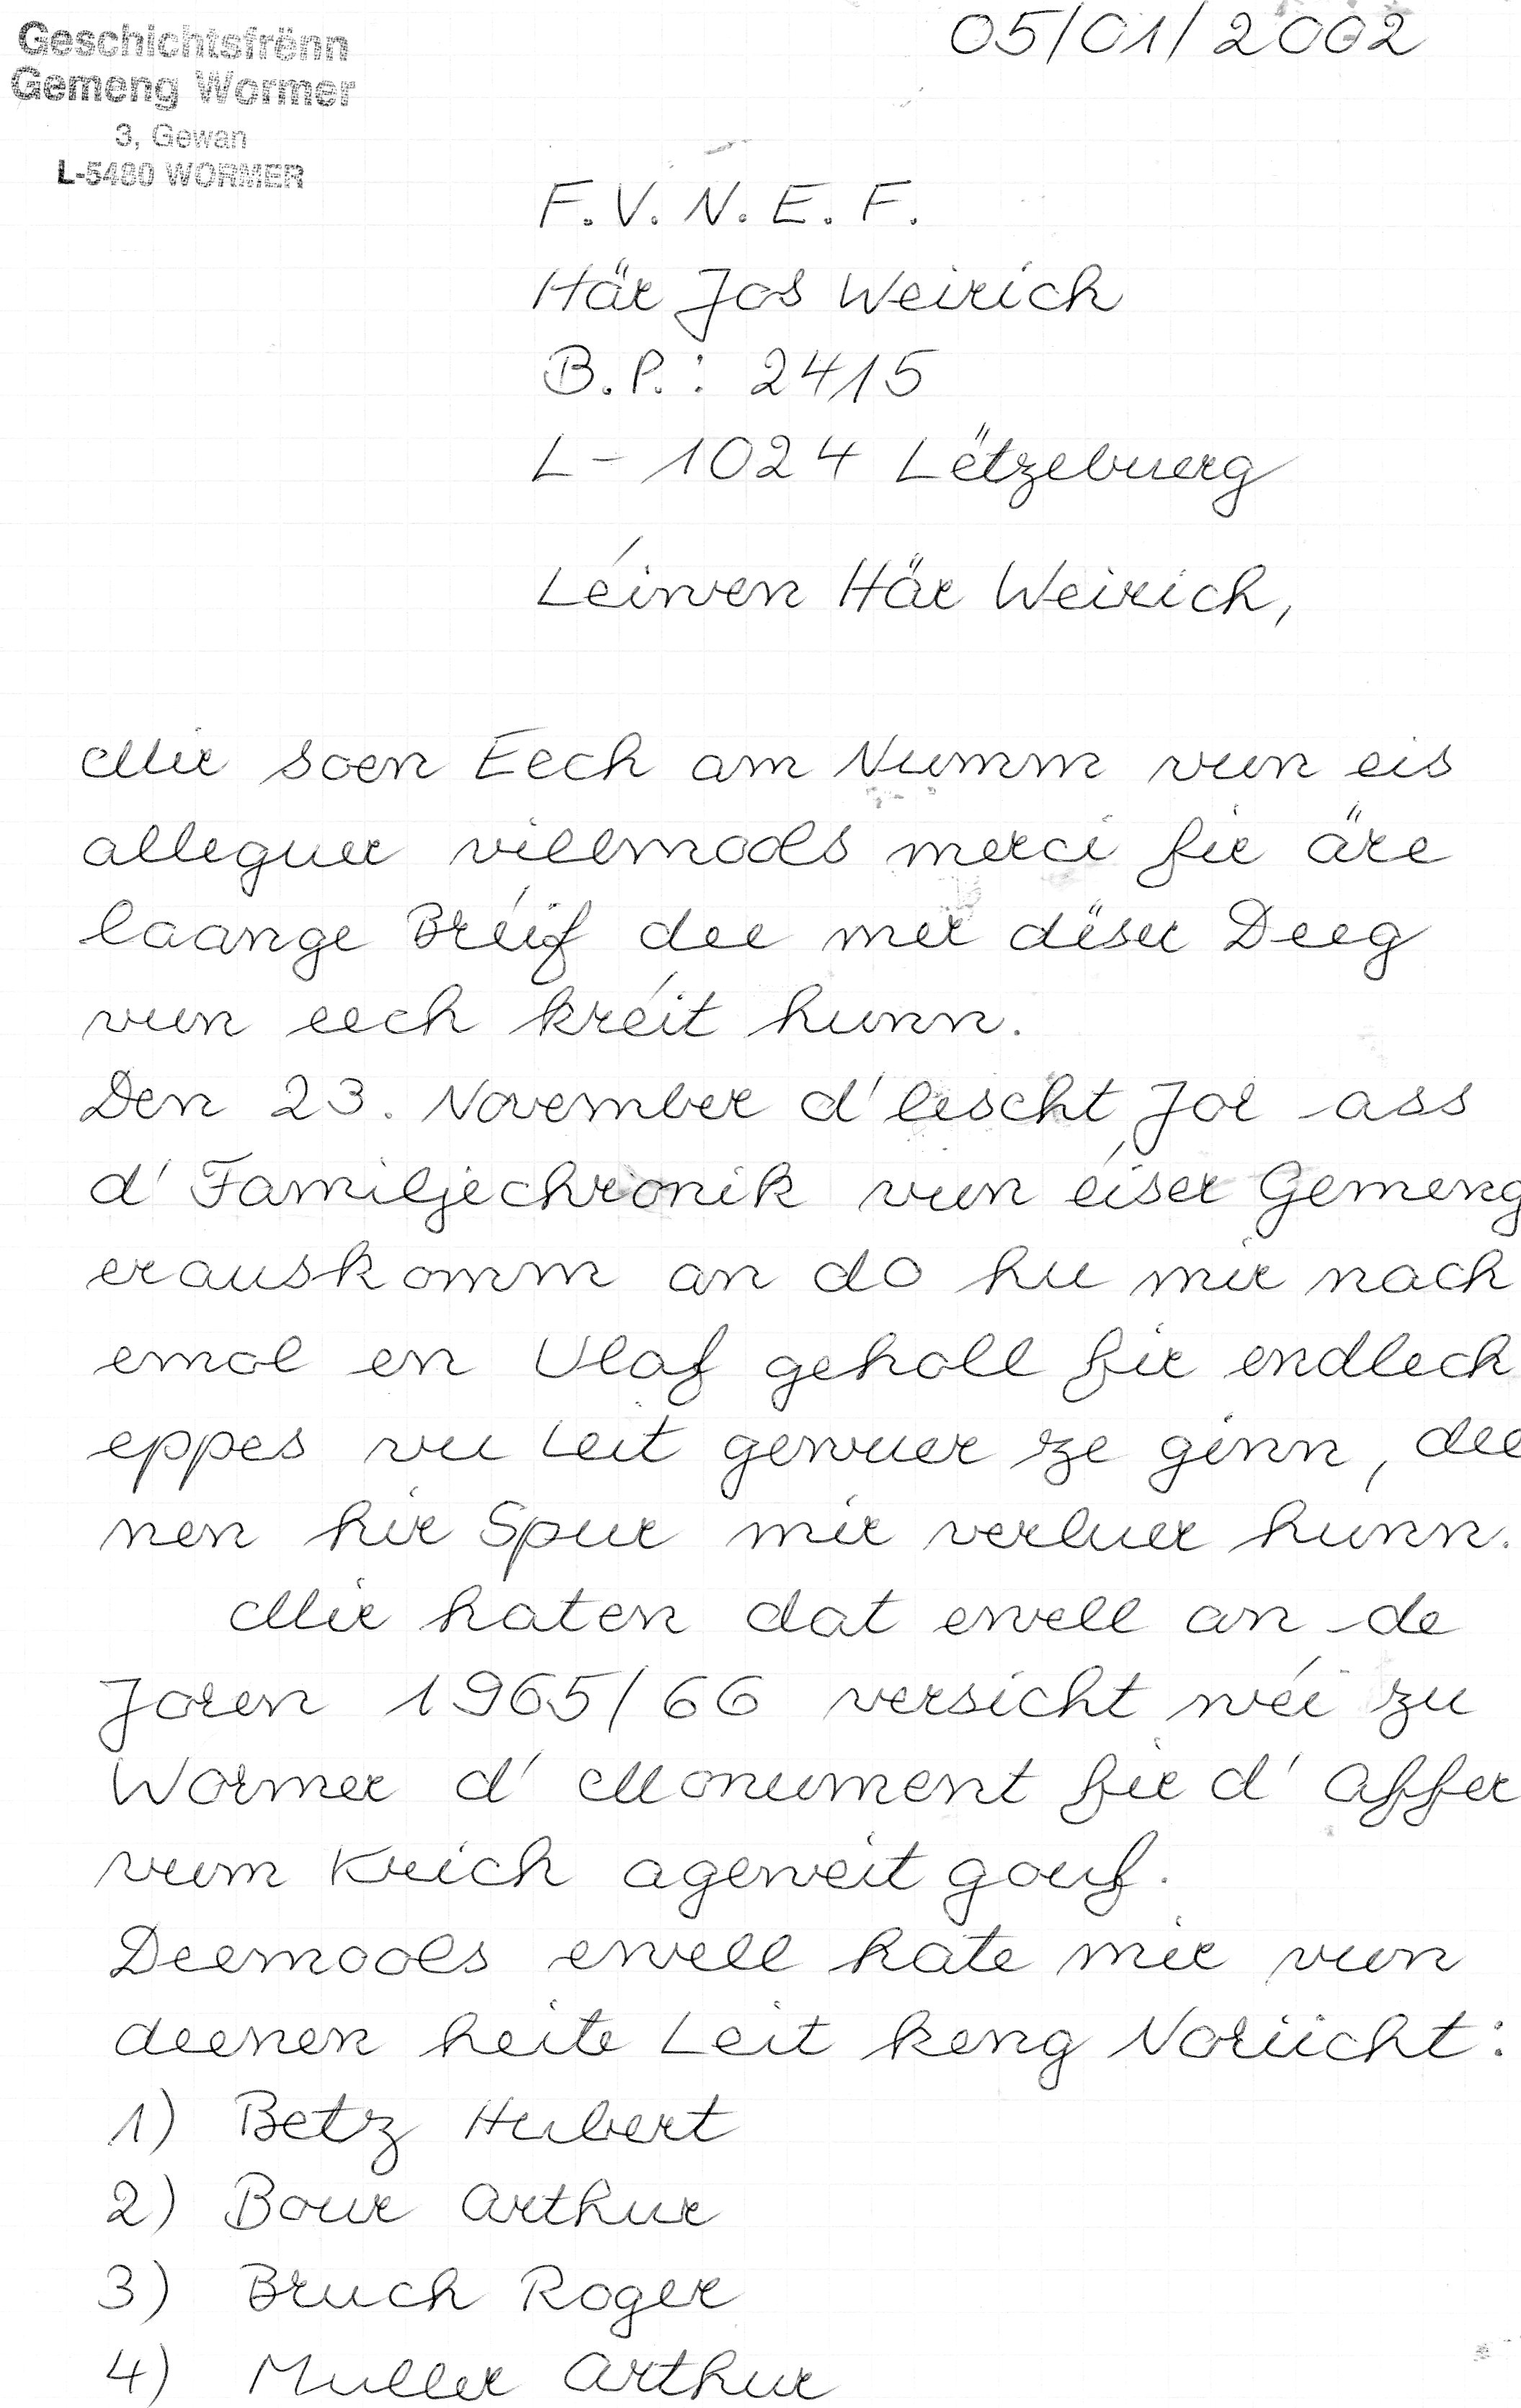 Geschichtsfrënn
Gemeng Wormer
3, Gewan
L-5480 WORMER
05/01/2002
F.V.N.E.F.
Här Jos Weirich
B.P.: 2415
L-1024 Lëtzebuerg
Léiwen Här Weirich,
Mir soen Eech am Numm vun eis
alleguer villmools merci fir äre
laange Bréif dee mer dëser Deeg
vun eech kréit hunn.
Den 23. November d'lescht Jor ass
d'Familjechronik vun éiser Gemeng
erauskomm an do hu mir nach
emol en Ulaf geholl fir endlech
eppes vu Leit gewuer ze ginn, dee
nen hir Spur mir verluer hunn.
Mir haten dat ewell an de
Joren 1965/66 versicht wéi zu
Wormer d'Monument fir d'Affer
vum Krich ageweit gouf.
Deemools ewell hate mir vun
deenen heite Leit keng Noriicht:
1) Betz Hubert
2) Bour Arthur
3) Bruch Roger
4) Muller Arthur